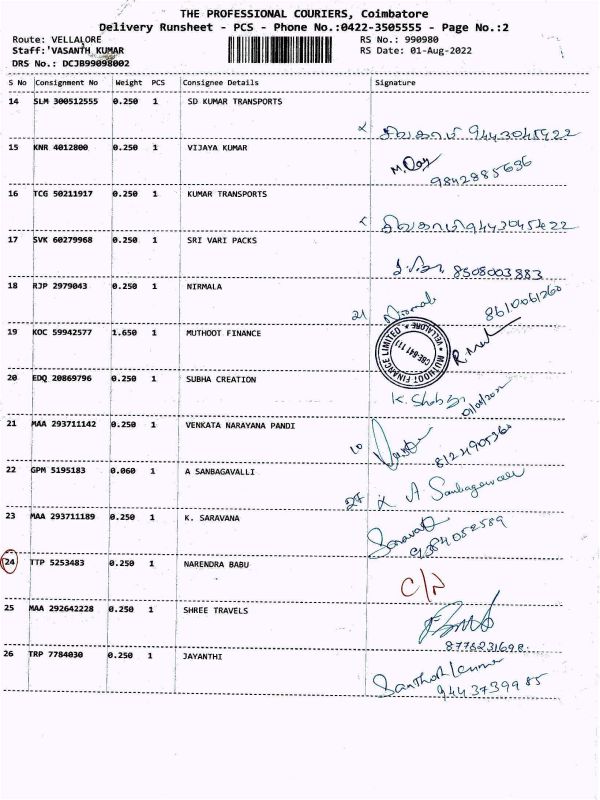 THE PROFESSIONAL COURIERS, Coimbatore
Delivery Runsheet - PCS - Phone No.:0422-3505555 - Page No.:2
Route: VELLALORE RS No.: 990980
Staff: VASANTH KUMAR RS Date: 01-Aug-2022
DRS No.: DCJB99098002
S No Consignment No Weight PCS Consignee Details Signature
14 SLM 300512555 0.250 1 SD KUMAR TRANSPORTS
சிவகாமி 9443045422
15 KNR 4012800 0.250 1 VIJAYA KUMAR
9842885636
16 TCG 50211917 0.250 1 KUMAR TRANSPORTS
சிவகாமி 9443045422
17 SVK 60279968 0.250 1 SRI VARI PACKS
8508003883
18 RJP 2979043 0.250 1 NIRMALA
21 Nirmala 8610061260
19 KOC 59942577 1.650 1 MUTHOOT FINANCE
MUTHOOT FINANCE LIMITED VELLALORE CBE-641 111
20 EDQ 20869796 0.250 1 SUBHA CREATION
21 MAA 293711142 0.250 1 VENKATA NARAYANA PANDI
10
22 GPM 5195183 0.060 1 A SANBAGAVALLI
27 A Sanbagavalli
23 MAA 293711189 0.250 1 K. SARAVANA
9384052589
24 TTP 5253483 0.250 1 NARENDRA BABU
25 MAA 292642228 0.250 1 SHREE TRAVELS
8778231698
26 TRP 7784030 0.250 1 JAYANTHI
Santhosh kumar
9443739985